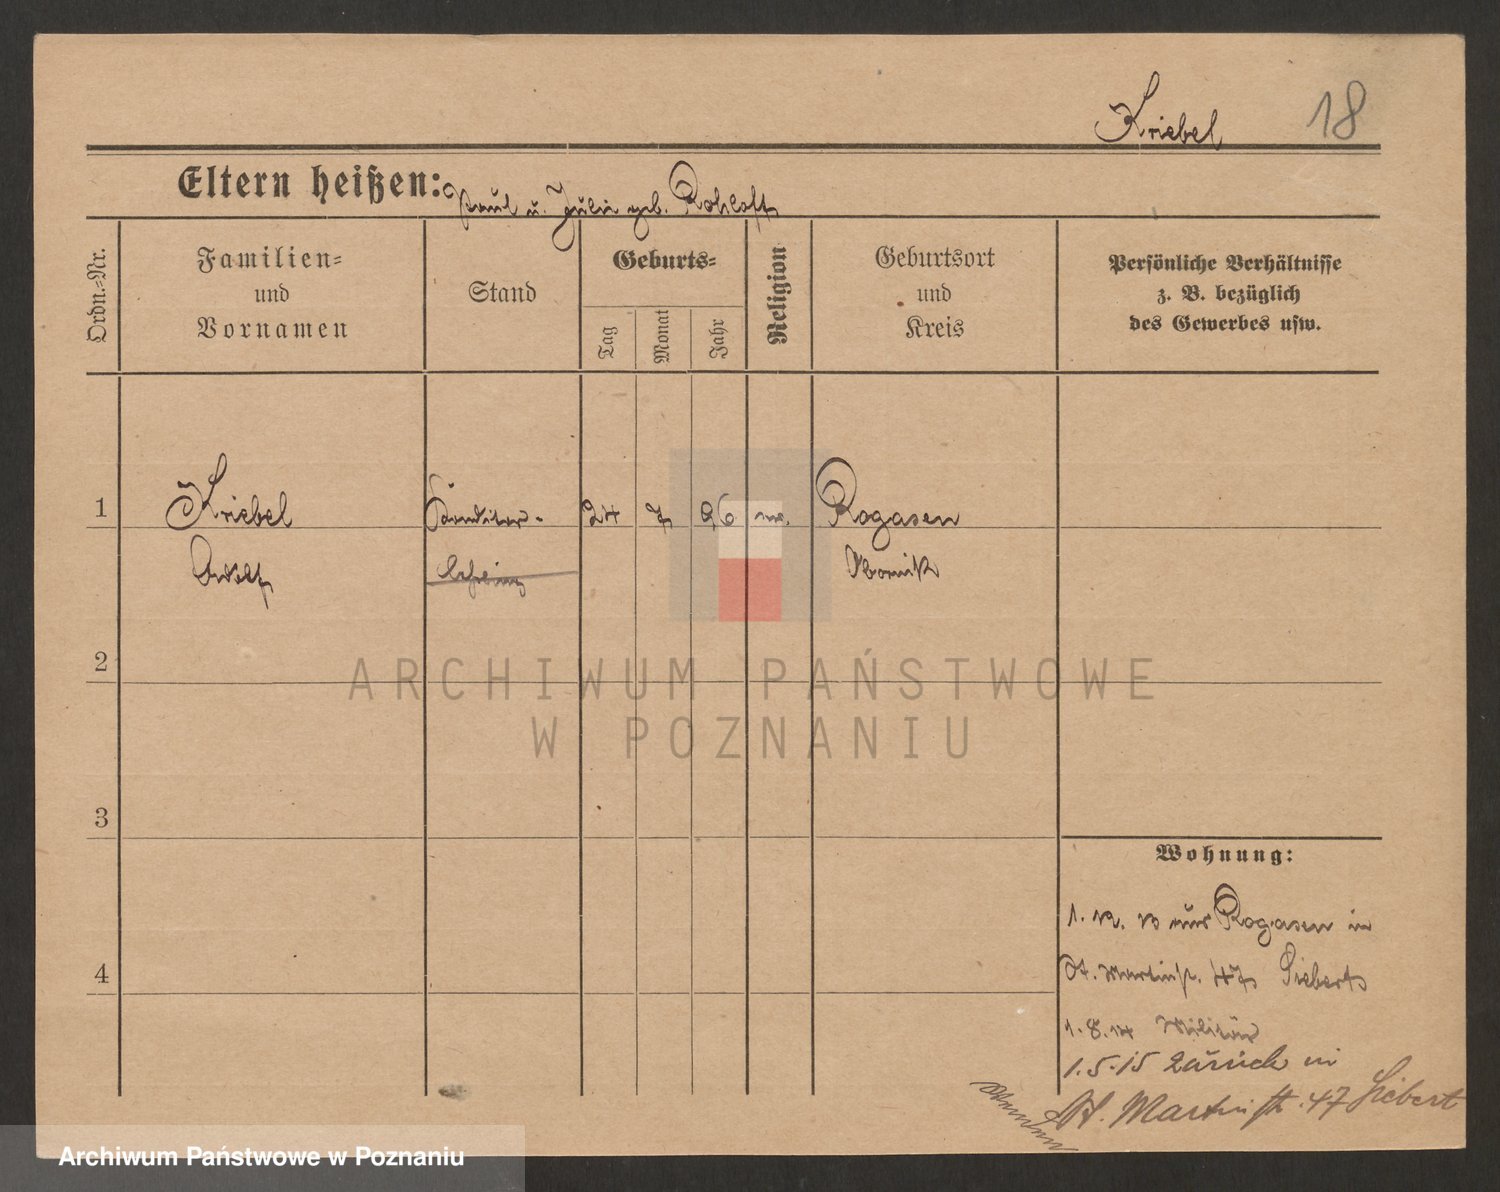 Kriebel 18
Eltern heißen: Paul u. Julie geb. Rohloff
Ordn.-Nr.
Familien-
und
Vornamen
Stand
Geburts-
Tag
Monat
Jahr
Religion
Geburtsort
und
Kreis
Persönliche Verhältnisse
z. B. bezüglich
des Gewerbes usw.
1 Kriebel Konditor- 24 7 96 Rogasen
Adolf lehrling Obornik
2
3
4
Wohnung:
1. aus Rogasen in
St. Martinstr. 47 Siebert
1.8.14 Militär
1.5.15 zurück in
St. Martinstr. 47 Siebert
ARCHIWUM PAŃSTWOWE
W POZNANIU
Archiwum Państwowe w Poznaniu